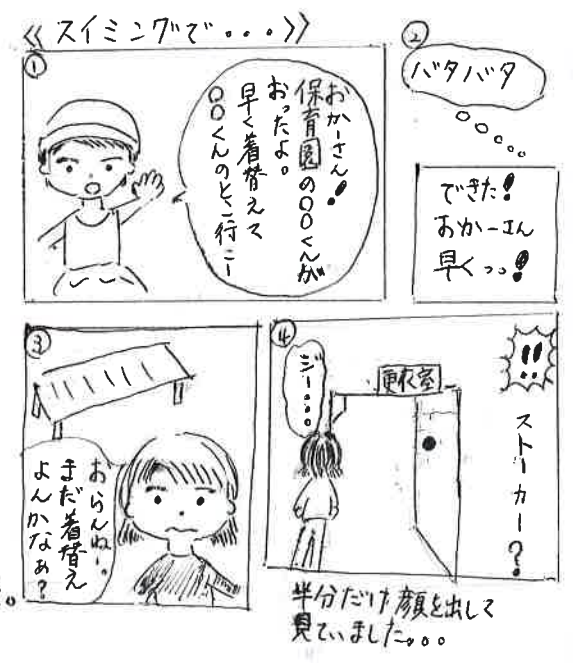 ≪スイミングで...≫
①
おかーさん!
保育園の○○くんが
おったよ。
早く着替えて
○○くんのとこ行こー
②
バタバタ
できた!
おかーさん
早くっっ!
③
おらんねー。
まだ着替え
よんかなぁ?
④
ジー...
更衣室
!!
ストーカー?
半分だけ顔を出して
見ていました。。。